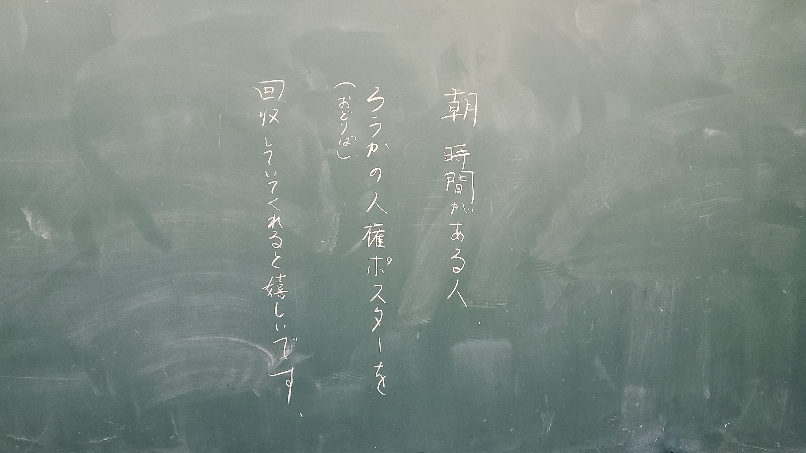 朝 時間がある人
ろうかの人権ポスターを
(おどりばも)
回収していてくれると嬉しいです。